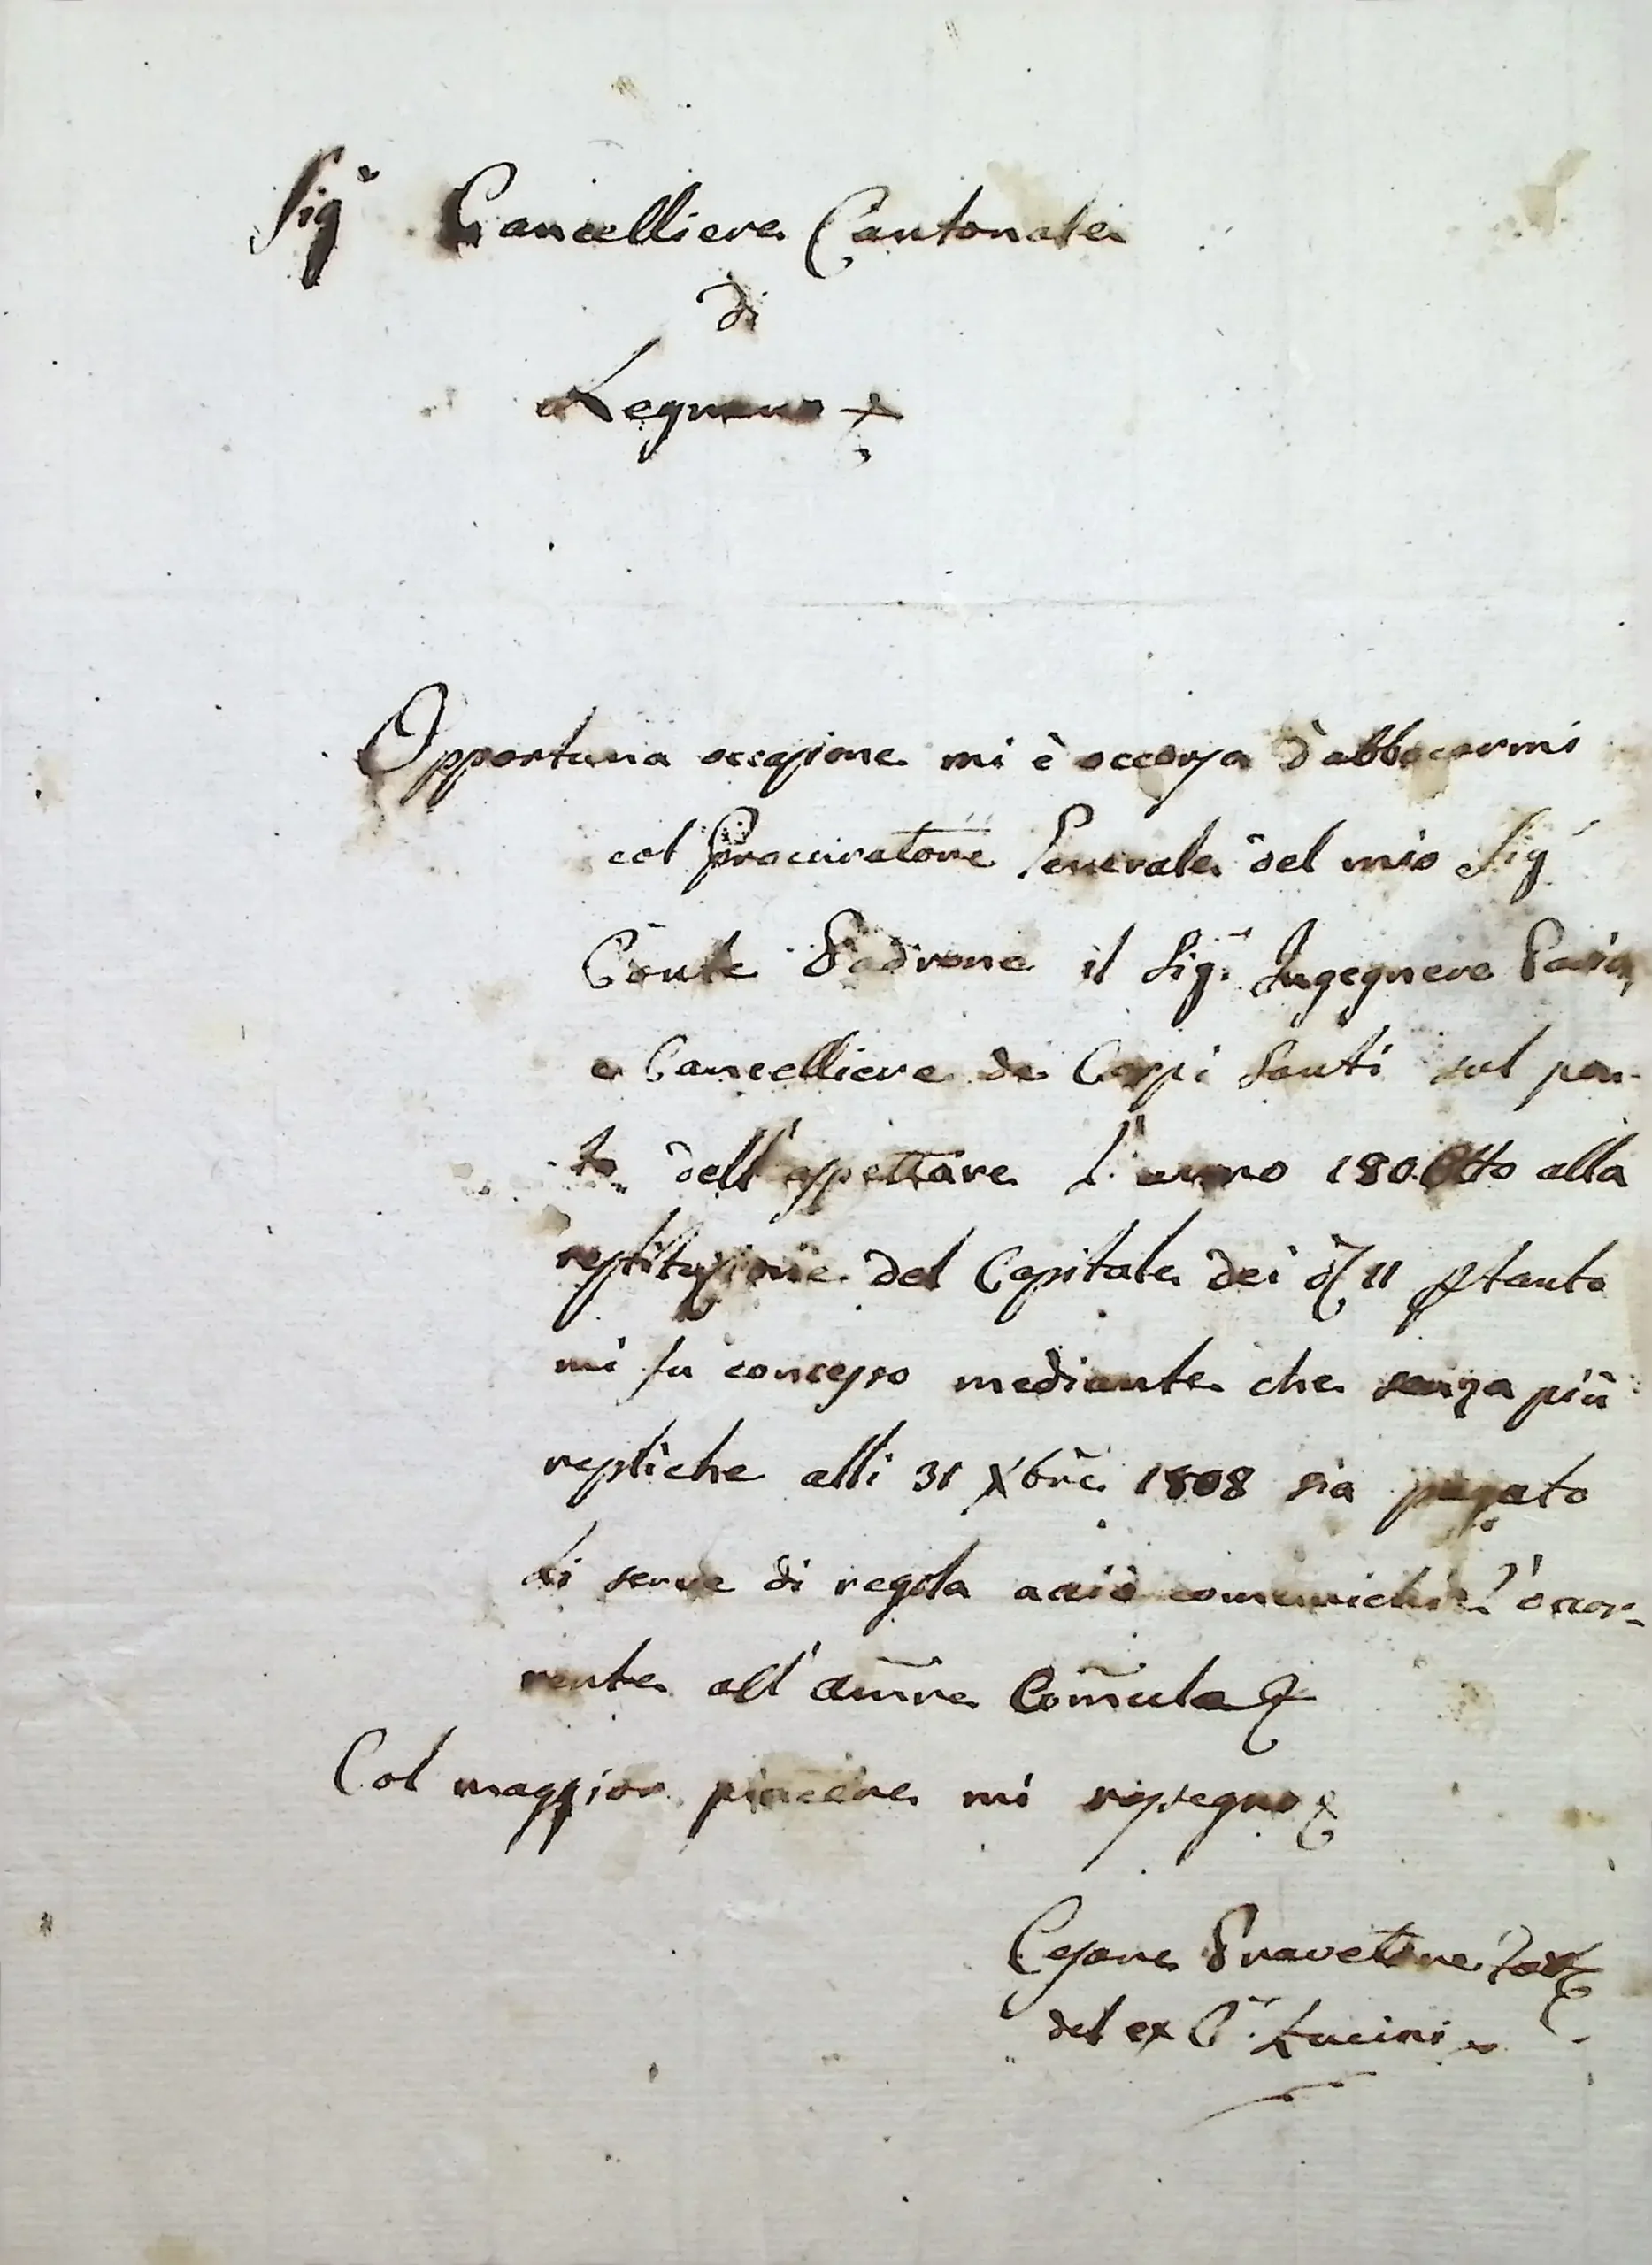 Sig.r Cancelliere Cantonale
di
Legnano
Opportuna occasione mi è occorsa d'abbocarmi
col Proccuratore Generale del mio Sig.r
Conte Padrone il Sig.r Ingegnere Pavia,
e Cancelliere de Corpi Santi sul pon-
to dell'aspettare l'anno 180Otto alla
restituzione del Capitale dei 11 ptanto
mi fu concesso mediante che senza più
repliche alli 31 Xbre 1808 sia pagato
li serve di regola acciò comunichi l'occor-
rente all'Amne Comule
Col maggior piacere mi rassegno
Cesare Pravetone
del ex C. Lucini